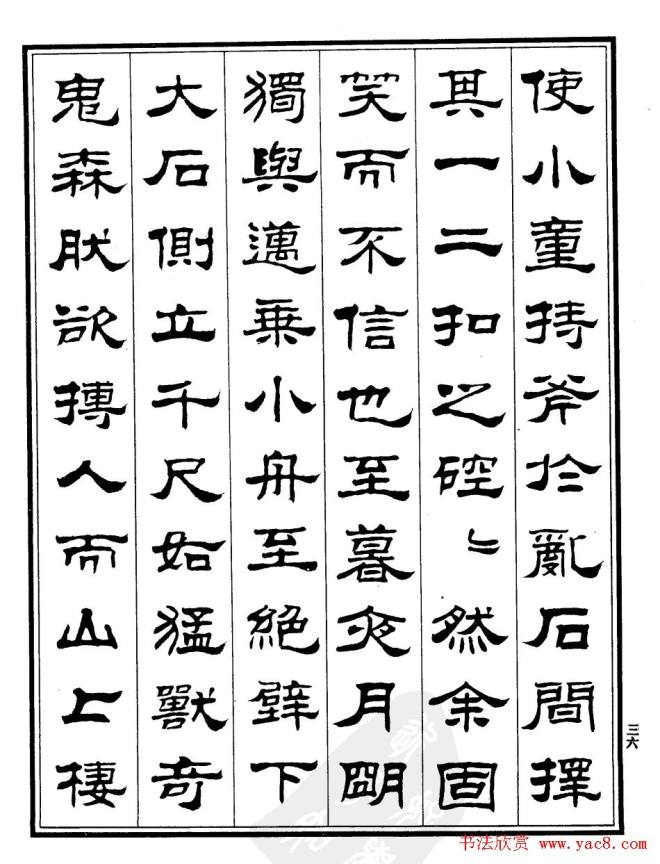 使小童持斧於亂石間擇
其一二扣之硿〻然余固
笑而不信也至暮夜月朙
獨與邁乗小舟至絕壁下
大石側立千尺如猛獸奇
鬼森肰欲搏人而山上棲
三六
书法欣赏 www.yac8.com